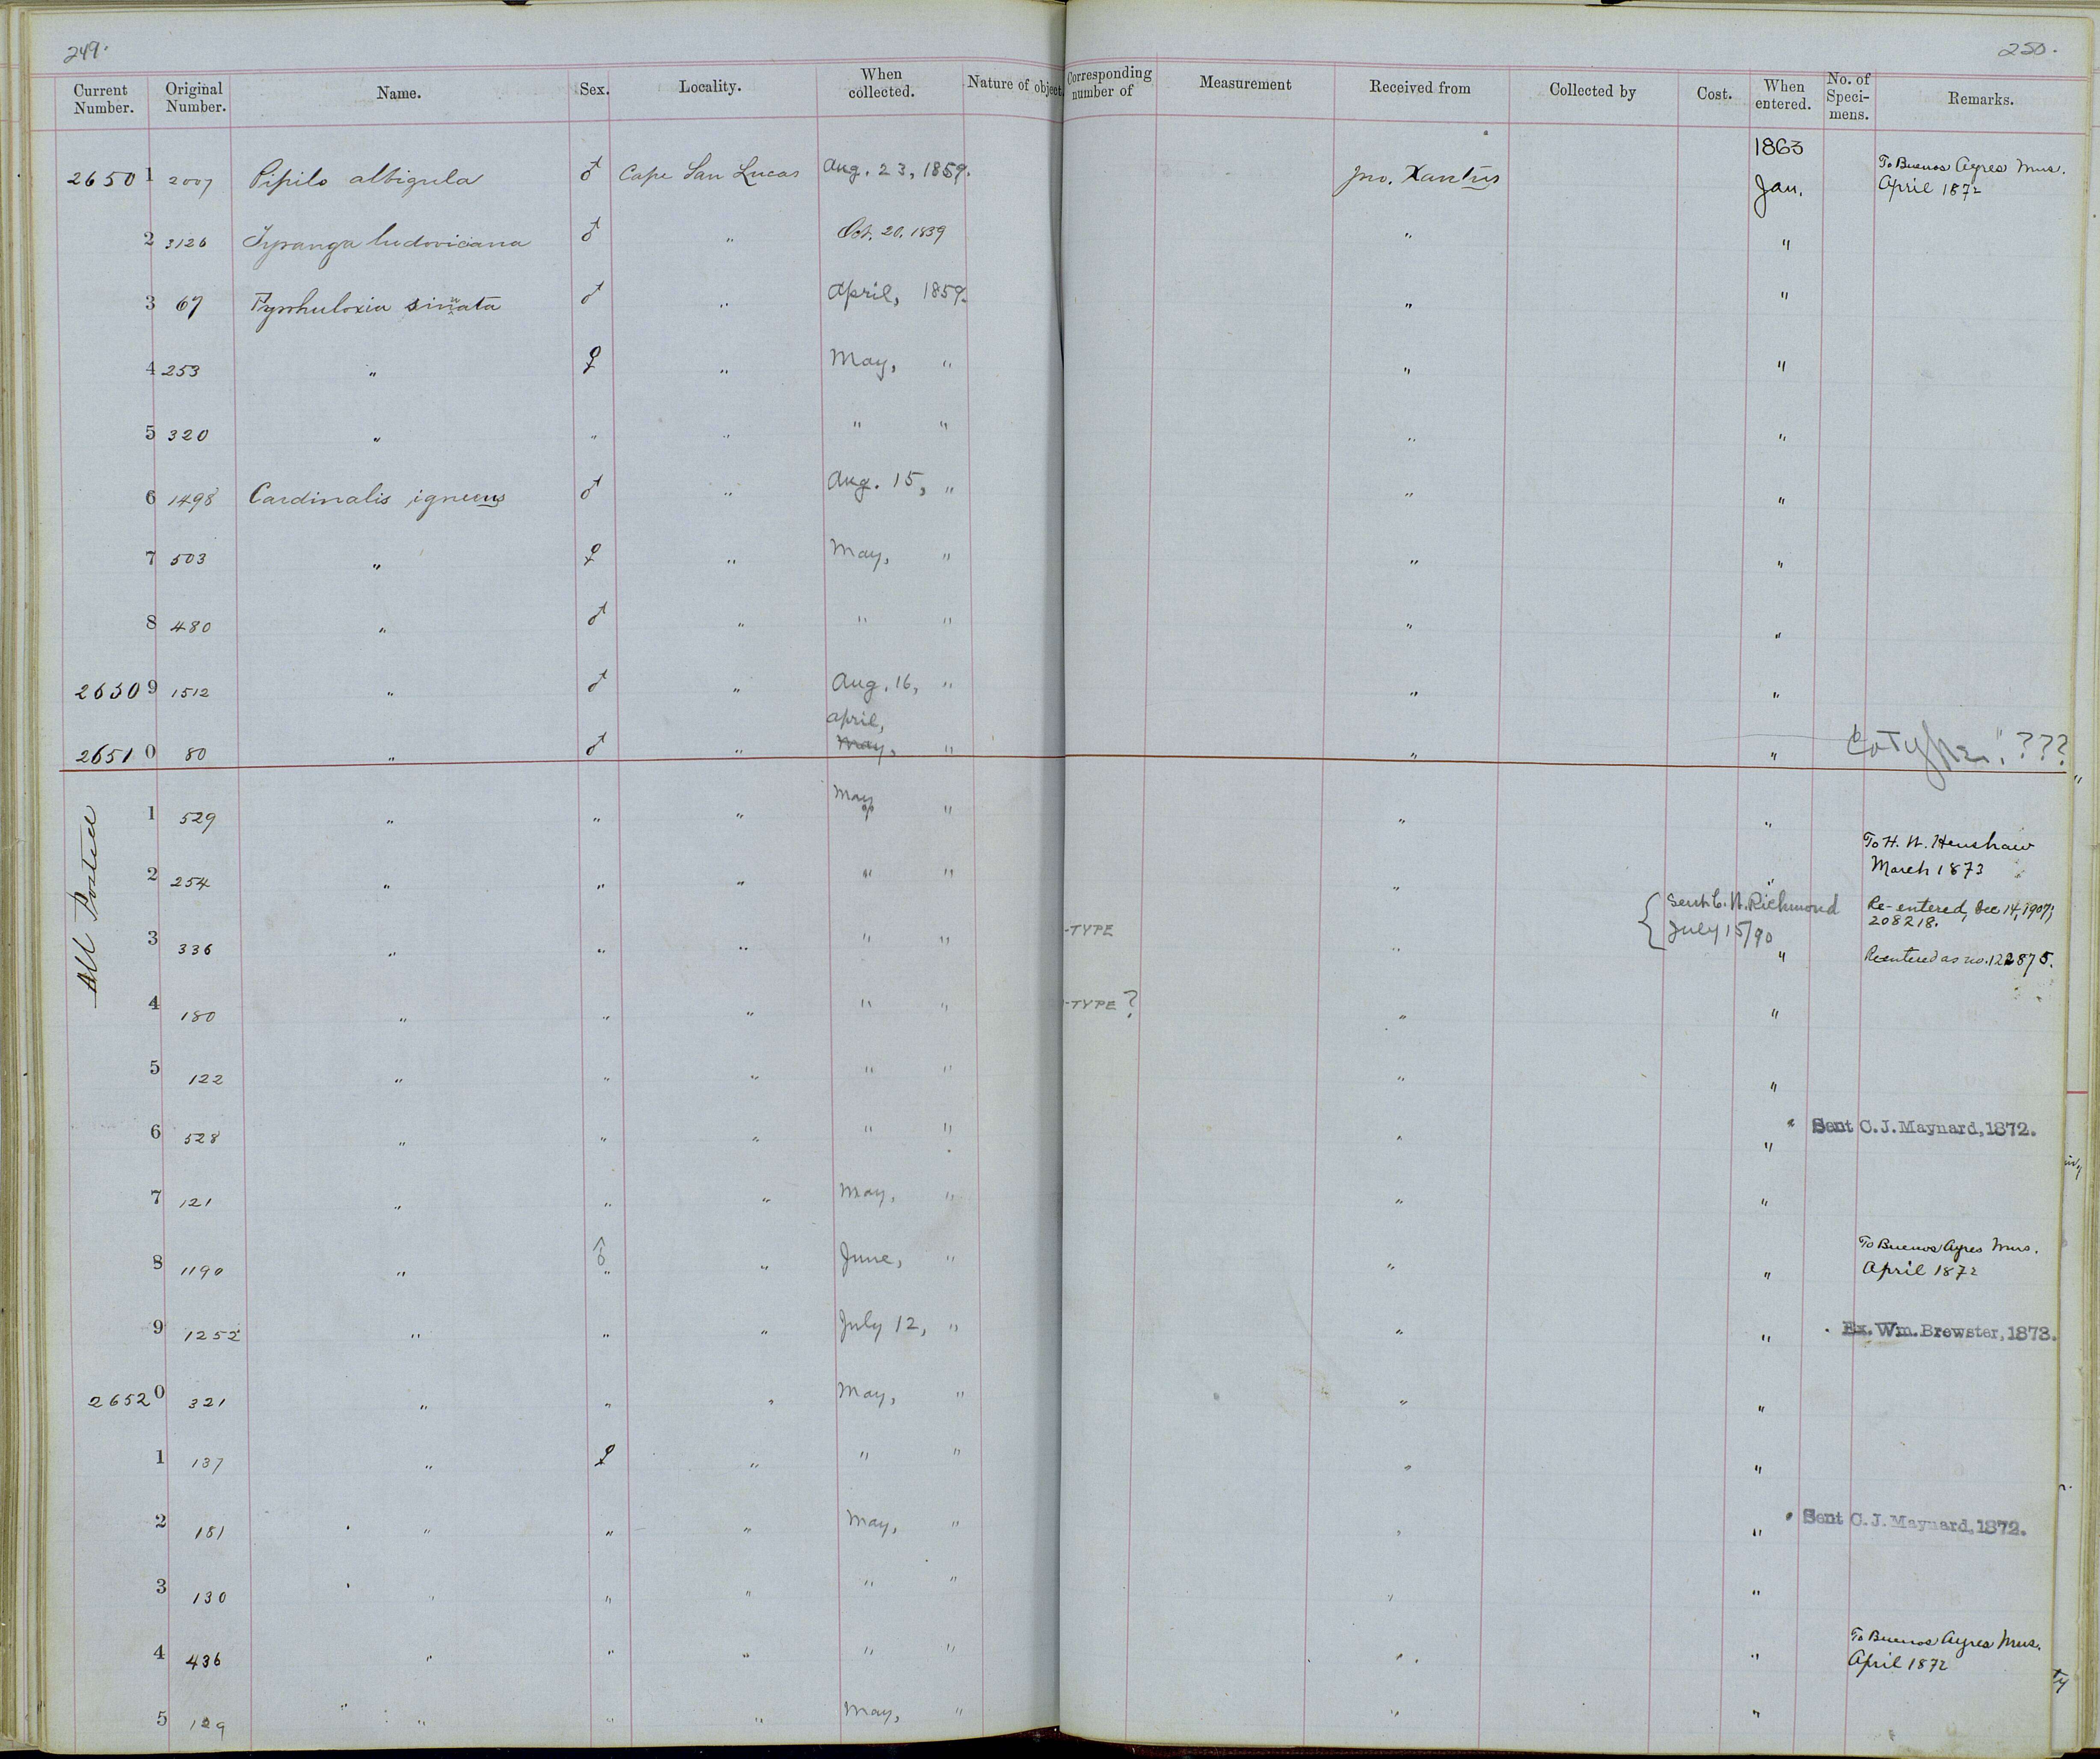 249.
250.
Current Number. Original Number. Name. Sex. Locality. When collected. Nature of object. Corresponding number of Measurement Received from Collected by Cost. When entered. No. of Speci-mens. Remarks.
1863
26501 2007 Pipilo albigula ♂ Cape San Lucas Aug. 23, 1859. Jno. Xantus Jan. To Buenos Ayres Mus. April 1872
2 3126 Pyranga ludoviciana ♂ " Oct. 20. 1839 " "
3 67 Pyrrhuloxia sinuata ♂ " April, 1859. " "
4 253 " ♀ " May, " " "
5 320 " " " " " " "
6 1498 Cardinalis igneus ♂ " Aug. 15, " " "
7 503 " ♀ " May, " " "
8 480 " ♂ " " " " "
26309 1512 " ♂ " Aug. 16, " " "
april,
26510 80 " ♂ " May, " " " CoType! ???
All Posted
1 529 " " " May " " "
2 254 " " " " " " " To H. W. Henshaw March 1873
Sent C. W. Richmond July 15/90
Re-entered, Dec 14, 1907; 208218.
3 336 " " " " " -TYPE " " Reentered as no. 122875.
4 180 " " " " " -TYPE ? " "
5 122 " " " " " " "
6 528 " " " " " " " Sent C. J. Maynard, 1872.
7 121 " " " May, " " "
8 1190 " ♂ " " June, " " " To Buenos Ayres Mus. April 1872
9 1252 " " " July 12, " " " Ex. Wm. Brewster, 1873.
26520 321 " " " May, " " "
1 137 " ♀ " " " " "
2 181 " " " May, " " " Sent C. J. Maynard, 1872.
3 130 " " " " " " "
4 436 " " " " " " " To Buenos Ayres Mus. April 1872
5 129 " " " May, " " "